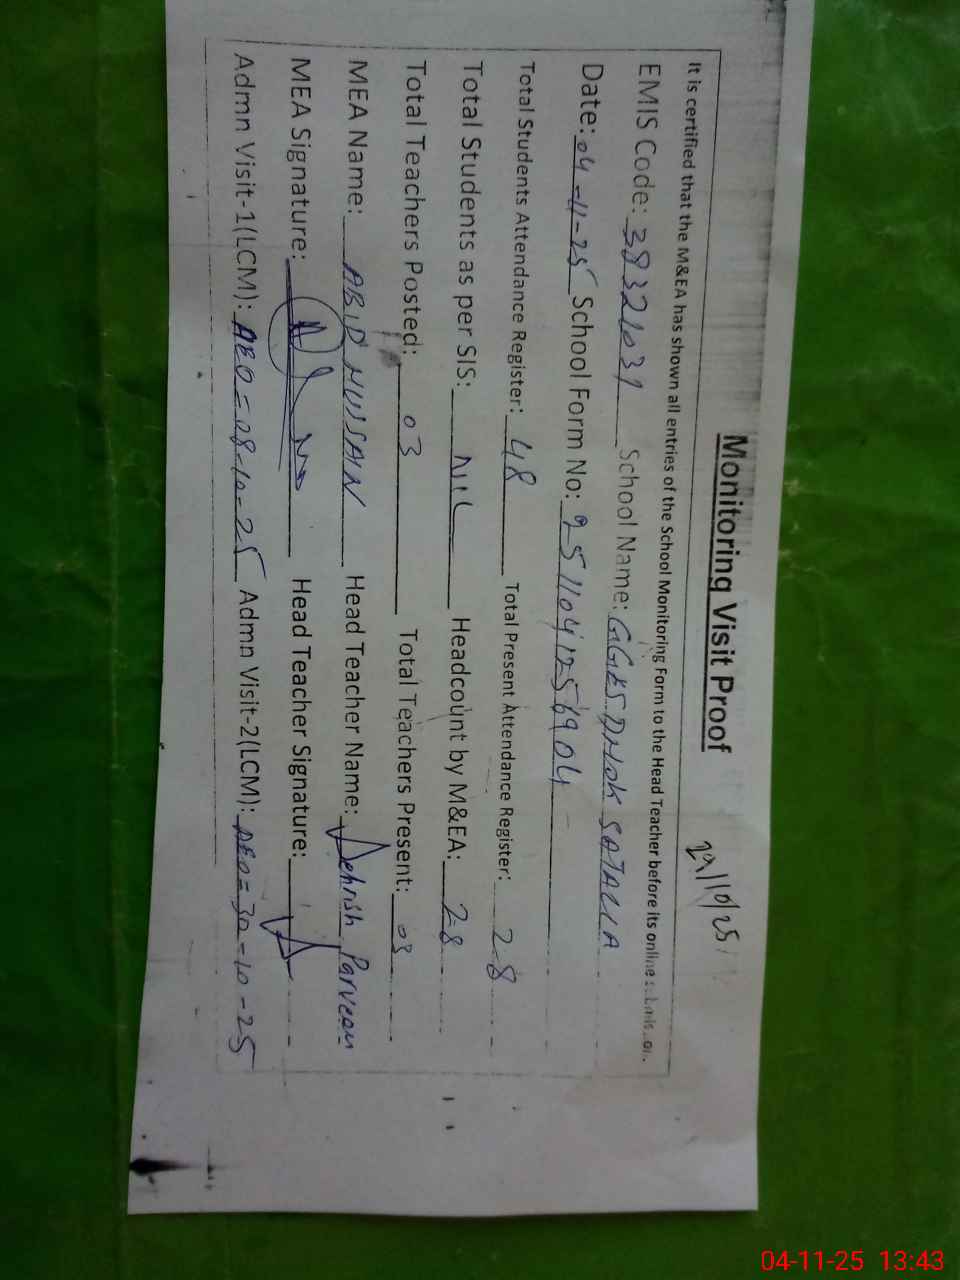 Monitoring Visit Proof
It is certified that the M&EA has shown all entries of the School Monitoring Form to the Head Teacher before its online
EMIS Code: 38321031 School Name: GGES DHOK SOTALIA
Date: 04-11-25 School Form No: 2511041256904
Total Students Attendance Register: 48 Total Present Attendance Register: 28
Total Students as per SIS: NIL Headcount by M&EA: 28
Total Teachers Posted: 03 Total Teachers Present: 03
MEA Name: ABID HUSSAIN Head Teacher Name: Parveen
MEA Signature: Head Teacher Signature:
Admn Visit-1(LCM): AEO=08-10-25 Admn Visit-2(LCM): AEO=30-10-25
04-11-25 13:43